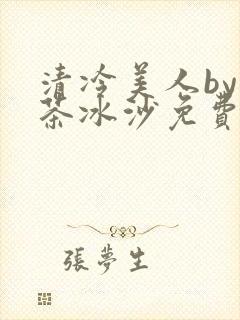 清冷美人by
茶冰沙免費
張夢生